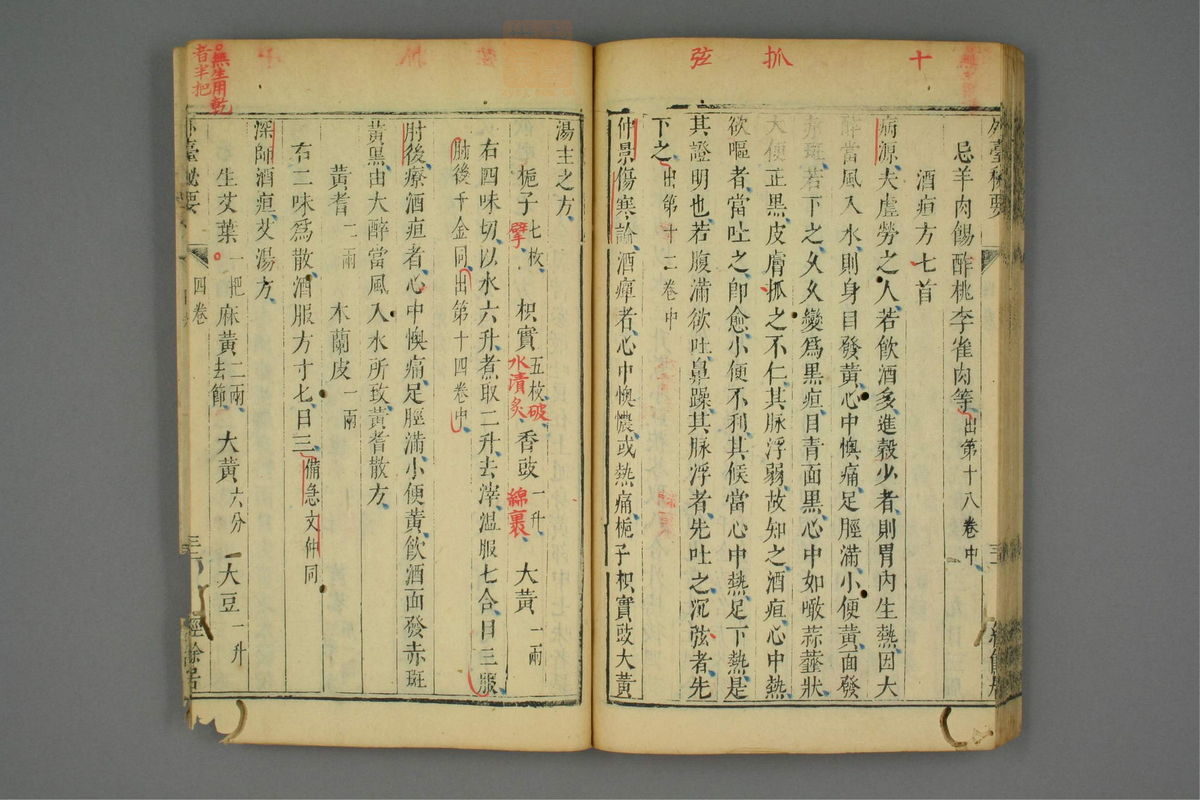 十
抓
弦
外臺秘要
忌羊肉餳酢桃李雀肉等出第十八卷中
酒疸方七首
病源夫虛勞之人若飲酒多進穀少者則胃內生熱因大
醉當風入水則身目發黃心中懊痛足脛滿小便黃面發
赤斑若下之久久變爲黑疸目青面黑心中如噉蒜虀狀
大便正黑皮膚抓之不仁其脉浮弱故知之酒疸心中熱
欲嘔者當吐之卽愈小便不利其候當心中熱足下熱是
其證明也若腹滿欲吐鼻躁其脉浮者先吐之沉弦者先
下之出第十二卷中
仲景傷寒論酒癉者心中懊憹或熱痛梔子枳實豉大黃
湯主之方
梔子七枚擘 枳實五枚破水漬炙 香豉一升綿裹 大黃一兩
右四味切以水六升煮取二升去滓溫服七合日三服
肘後千金同出第十四卷中
肘後療酒疸者心中懊痛足脛滿小便黃飲酒面發赤斑
黃黑由大醉當風入水所致黃耆散方
黃耆二兩 木蘭皮一兩
右二味爲散酒服方寸匕日三備急文仲同
深師酒疸艾湯方
生艾葉一把 麻黃二兩去節 大黃六分 大豆一升
無生用乾
者半把
外臺秘要
四卷
經餘居